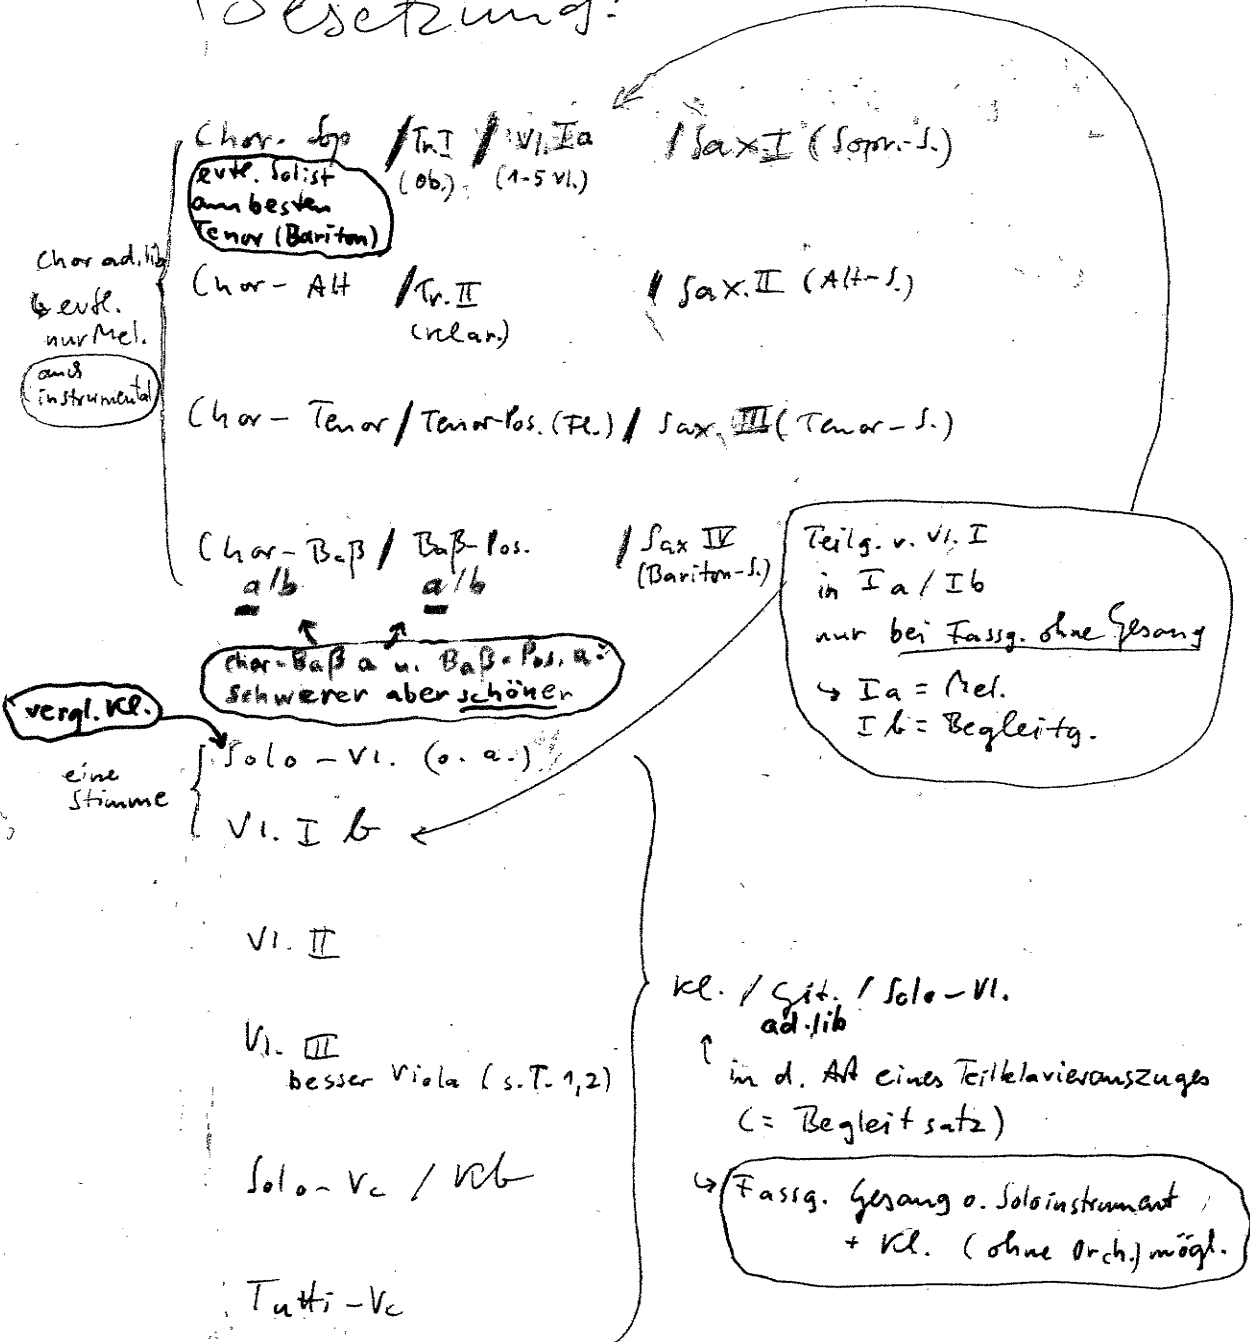 Besetzung:
Chor. Sop / Tr. I / Vl. Ia / Sax I (Sopr.-S.)
(Ob.) (1-5 Vl.)
evtl. Solist
am besten
Tenor (Bariton)
Chor ad. lib
↳ evtl.
nur Mel.
auch
instrumental
Chor - Alt / Tr. II / Sax. II (Alt-S.)
(Klar.)
Chor - Tenor / Tenor-Pos. (Fl.) / Sax. III (Tenor-S.)
Chor - Baß / Baß-Pos. / Sax IV
a/b a/b (Bariton-S.)
Chor-Baß a u. Baß-Pos. a:
schwerer aber schöner
Teilg. v. Vl. I
in Ia / Ib
nur bei Fassg. ohne Gesang
↳ Ia = Mel.
Ib = Begleitg.
vergl. Kl.
eine
Stimme
Solo - Vl. (o. a.)
Vl. I b
Vl. II
Vl. III
besser Viola (s. T. 1,2)
Solo - Vc / Kb
Tutti - Vc
Kl. / Git. / Solo - Vl.
ad. lib
↑ in d. Art eines Teilklavierauszuges
(= Begleitsatz)
↳ Fassg. Gesang o. Soloinstrument
+ Kl. (ohne Orch.) mögl.